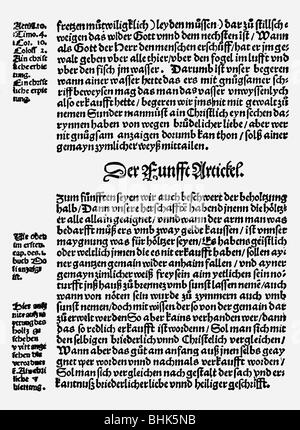 fretzen mütwiligtlich) leyden müssen) dar zü stillsch-
weigen das wider Gott vnnd dem nechsten ist/ Wann
als Gott der Herr den menschen erschüff/ hat er jm ge-
walt geben vber alle thier/vber den fogel im lufft vnd
vber den fisch jm wasser. Darumb ist vnser begeren
wann ainer wasser hette das ers mit gnügsamer sch-
rifft beweysen mag das man das vasser vnwyssenlych
also erkaufft hette/ begeren wir jms nit mit gewalt zü
nemen Sunder man müst ain Christlich eyn sechen dar
ynnen haben von wegen brüdelicher lieb/ aber wer
nit gnügsam anzaigen dar umb kan thon/ soltz ainer
gemayn zymlicher weyß mittailen.
Der Funfft Artickel.
Zum fünfften seyen wir auch beschwert der beholtzung
halb/ Dann vnsere herschafften habend jnenn die höltzer
alle allain geaignet/ vnnd wann der arm man was
bedarff müß ers vmb zway geldt kauffen/ ist vnnser
maynung was für höltzer seyen/ Es habens geistlich
oder weltlich jnnen die es nit erkaufft haben/ sollen ayner
gantzen gemain wider anhaim fallen/ vnd ayner
gemayn zimlicher weiß frey sein aim yetlichen sein no-
turfft jnß hauß zü brennen vmb sunst lassen nemen/ auch
wann von nöten sein wurde zü zymmern auch vmb
sunst nemen/ doch mit wissen der so von der gemain dar
zü erwelt werden So aber kains verhanden wer/ dann
das so redlich erkaufft ist wordenn/ Sol man sich mit
den selbigen briederlich vnnd Christelich vergleichen/
Wann aber das güt am anfang auß jnen selbs geay
gnet wer worden vnnd nachmals verkaufft worden/
Sol man sich vergleichen nach gestalt der sach vnd er-
kantnuß briederlicher liebe vnnd heiliger geschrifft.
BHK5NB